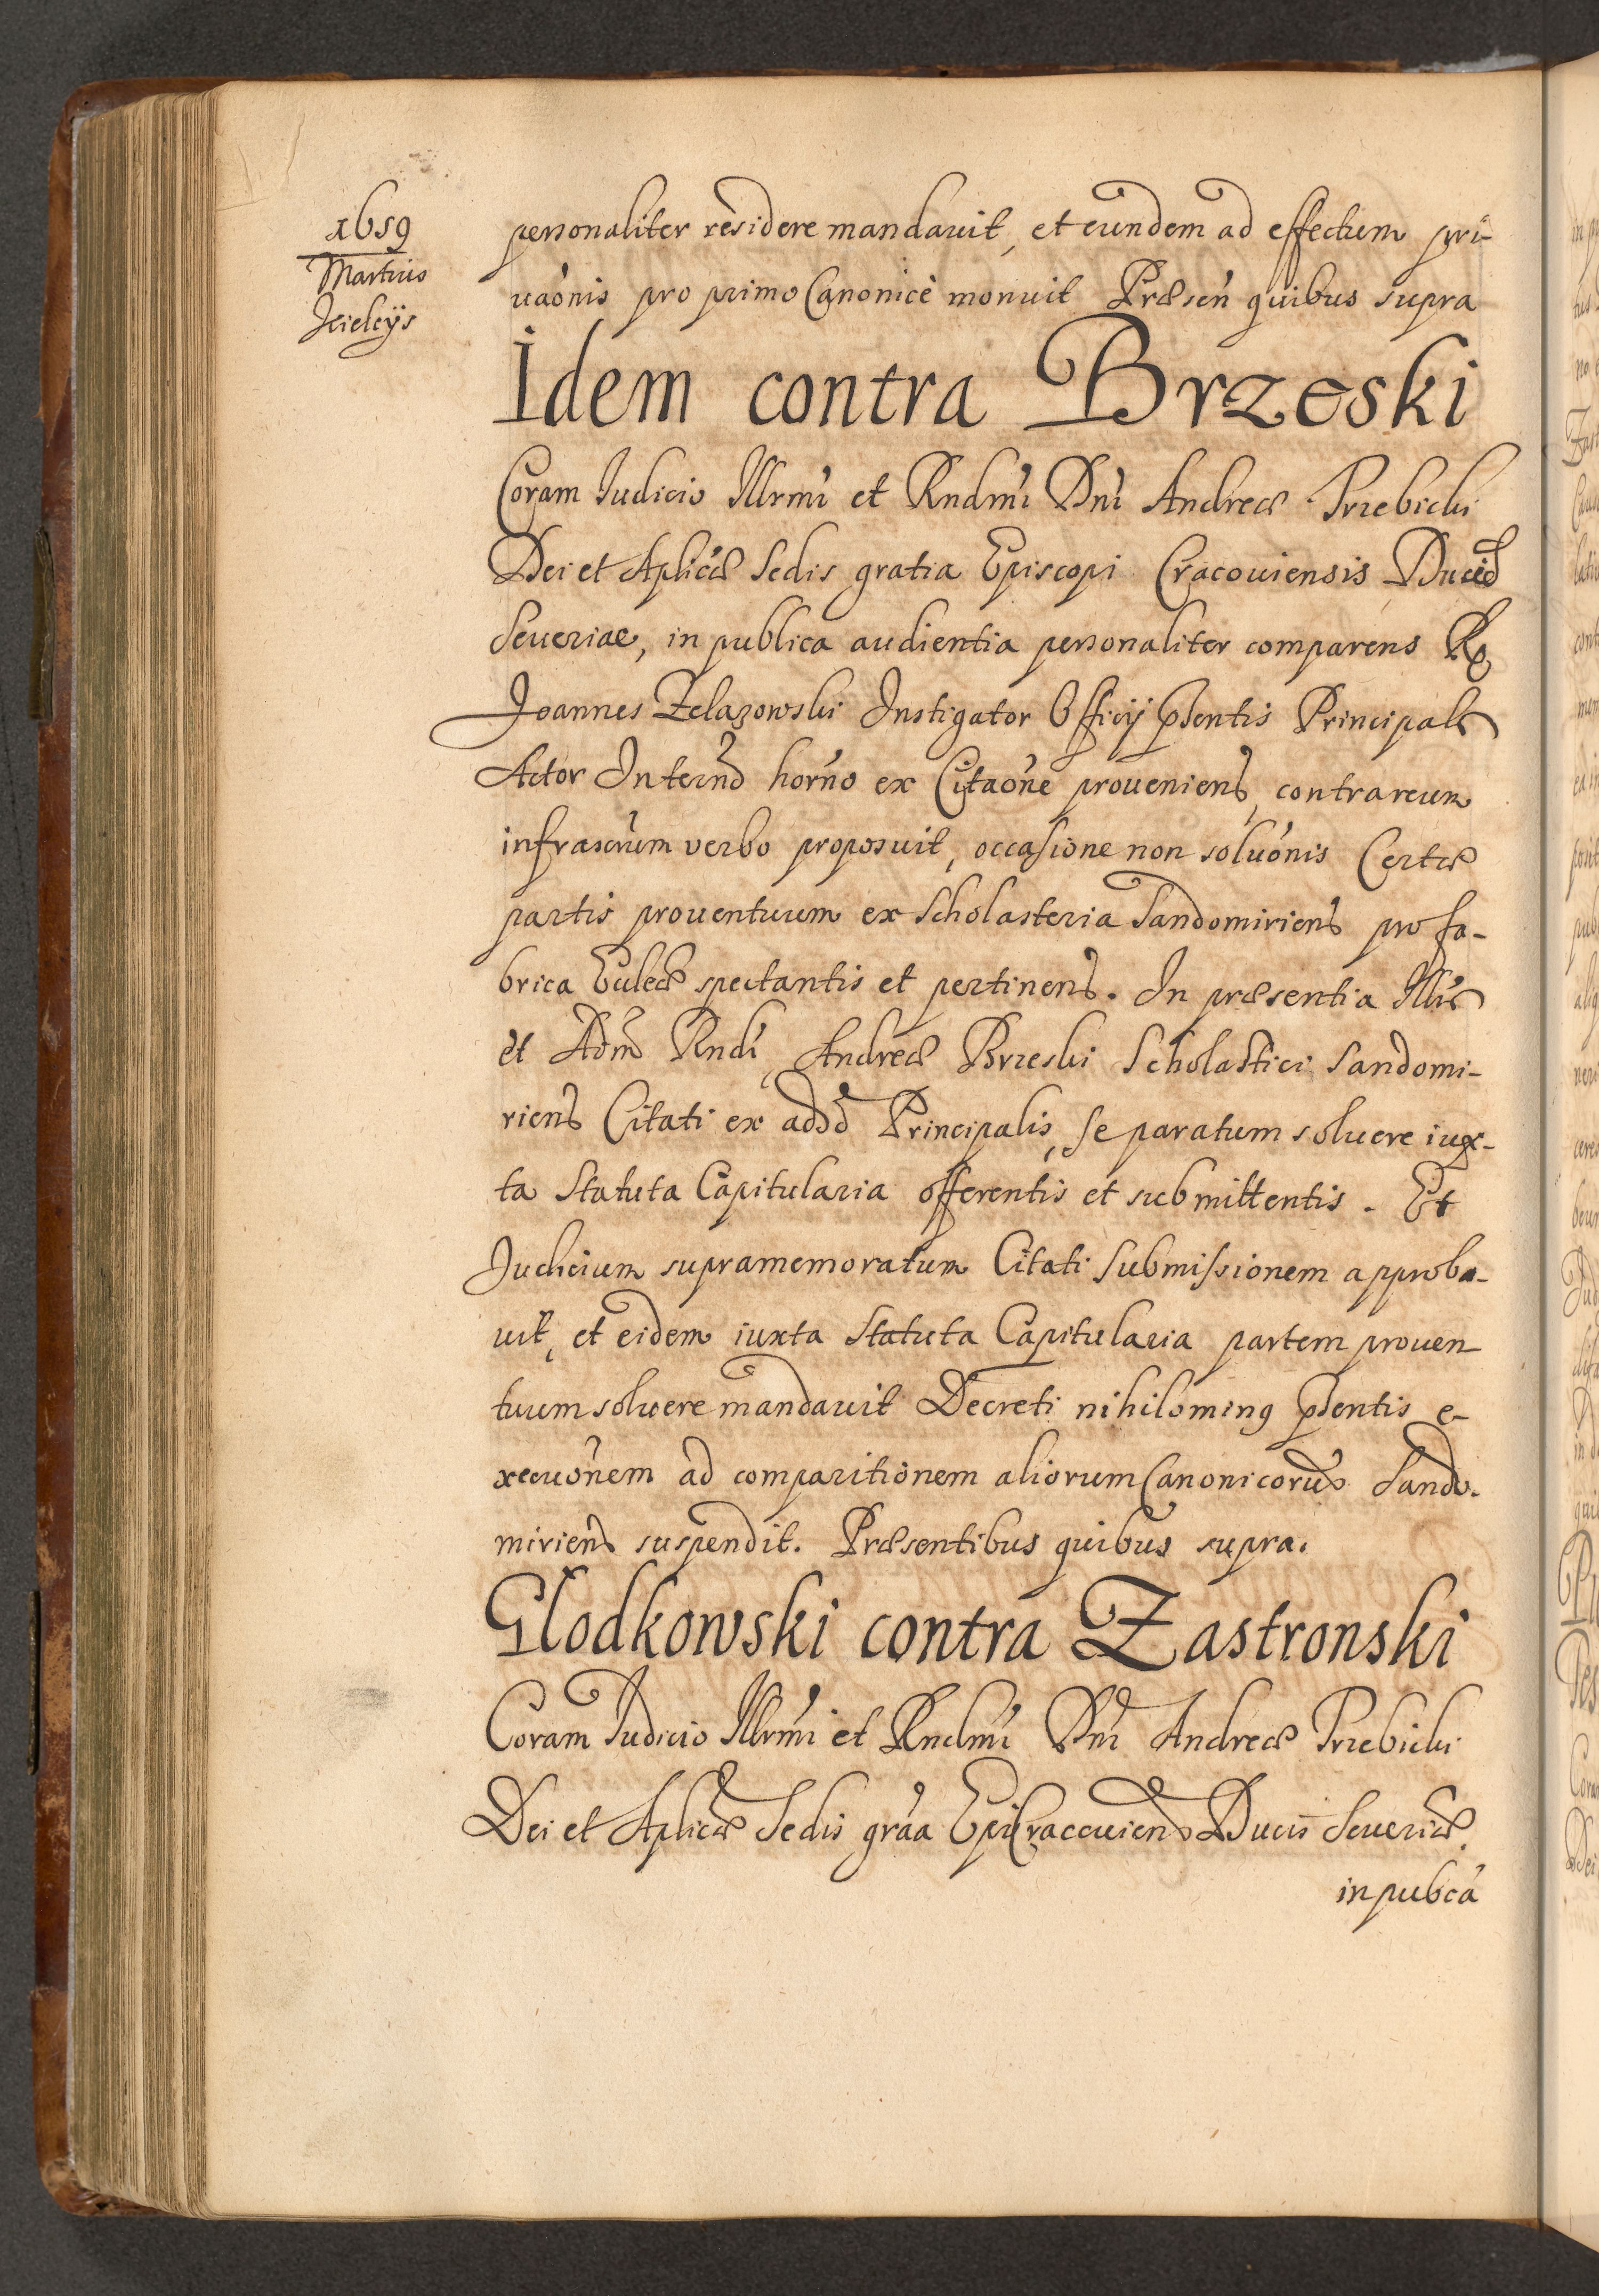 1659
Martius
Kielcijs
personaliter residere mandauit, et eundem ad effectum pri-
uaónis pro primo Canonicè monuit Præsen̄ quibus supra
Idem contra Brzeski
Coram Iudicio Illrmi et Rndmi Dni Andreæ Trzebicki
Dei et Aplicæ Sedis gratia Episcopi Cracouiensis Ducis
Seueriae, in publica audientia personaliter comparens R.
Joannes Zelazowski Instigator Officij pñtis Principalis
Actor In termō horño ex Citaóne proueniens, contra reum
infrascrum verbo proposuit, occasione non soluónis Certæ
partis prouentuum ex Scholasteria Sandomiriens pro fa-
brica Eccleæ spectantis et pertinens. In præsentia Illris
et Adm Rndi, Andreæ Brzeski Scholastici Sandomi-
riens Citati ex add Principalis, se paratum soluere iux-
ta Statuta Capitularia offerentis et submittentis. Et
Judicium supramemoratum Citati submissionem approba-
uit, et eidem iuxta Statuta Capitularia partem prouen-
tuum soluere mandauit Decreti nihilominq pñtis e-
xecuónem ad comparitionem aliorum Canonicorum Sando-
miriens suspendit. Præsentibus quibus supra.
Glodkowski contra Zastronski
Coram Iudicio Illrmi et Rndmi Dni Andreæ Trzebicki
Dei et Aplicæ Sedis gráa Epi Cracouiens Ducis Seueriæ
in pubcá